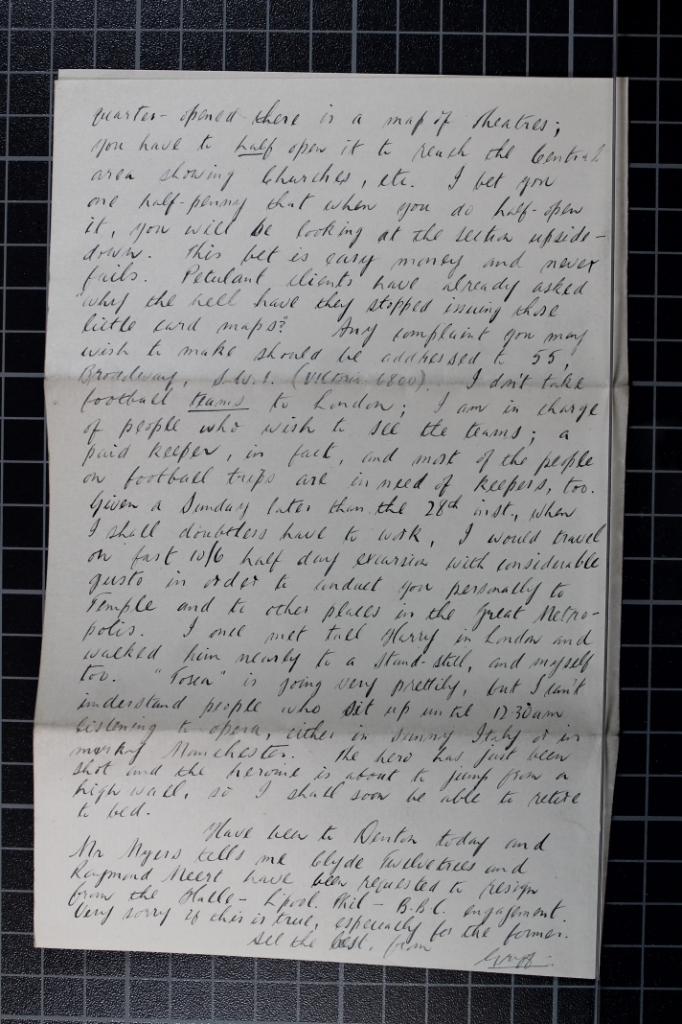 quarter-opened there is a map of theatres;
you have to half open it to reach the Central
area showing Churches, etc. I bet you
one half-penny that when you do half-open
it, you will be looking at the section upside-
down. This bet is easy money and never
fails. Petulant clients have already asked
"why the hell have they stopped issuing those
little card maps?" Any complaint you may
wish to make should be addressed to 55,
Broadway, S.W.1. (VICtoria 6800). I don't take
football teams to London; I am in charge
of people who wish to see the teams; a
paid keeper, in fact, and most of the people
on football trips are in need of keepers, too.
Given a Sunday later than the 28th inst., when
I shall doubtless have to work, I would travel
on fast 10/6 half day excursion with considerable
gusto in order to conduct you personally to
Temple and to other places in the Great Metro-
polis. I once met tall Harry in London and
walked him nearly to a stand-still, and myself
too. "Tosca" is going very prettily, but I can't
understand people who sit up until 12.30am
listening to opera, either in sunny Italy or in
murky Manchester. The hero has just been
shot and the heroine is about to jump from a
high wall, so I shall soon be able to retire
to bed.
Have been to Denton today and
Mr Myers tells me Clyde Twelvetrees and
Raymond Meert have been requested to resign
from the Halle - L'pool. Phil - B.B.C. engagement.
Very sorry if this is true, especially for the former.
All the best, from